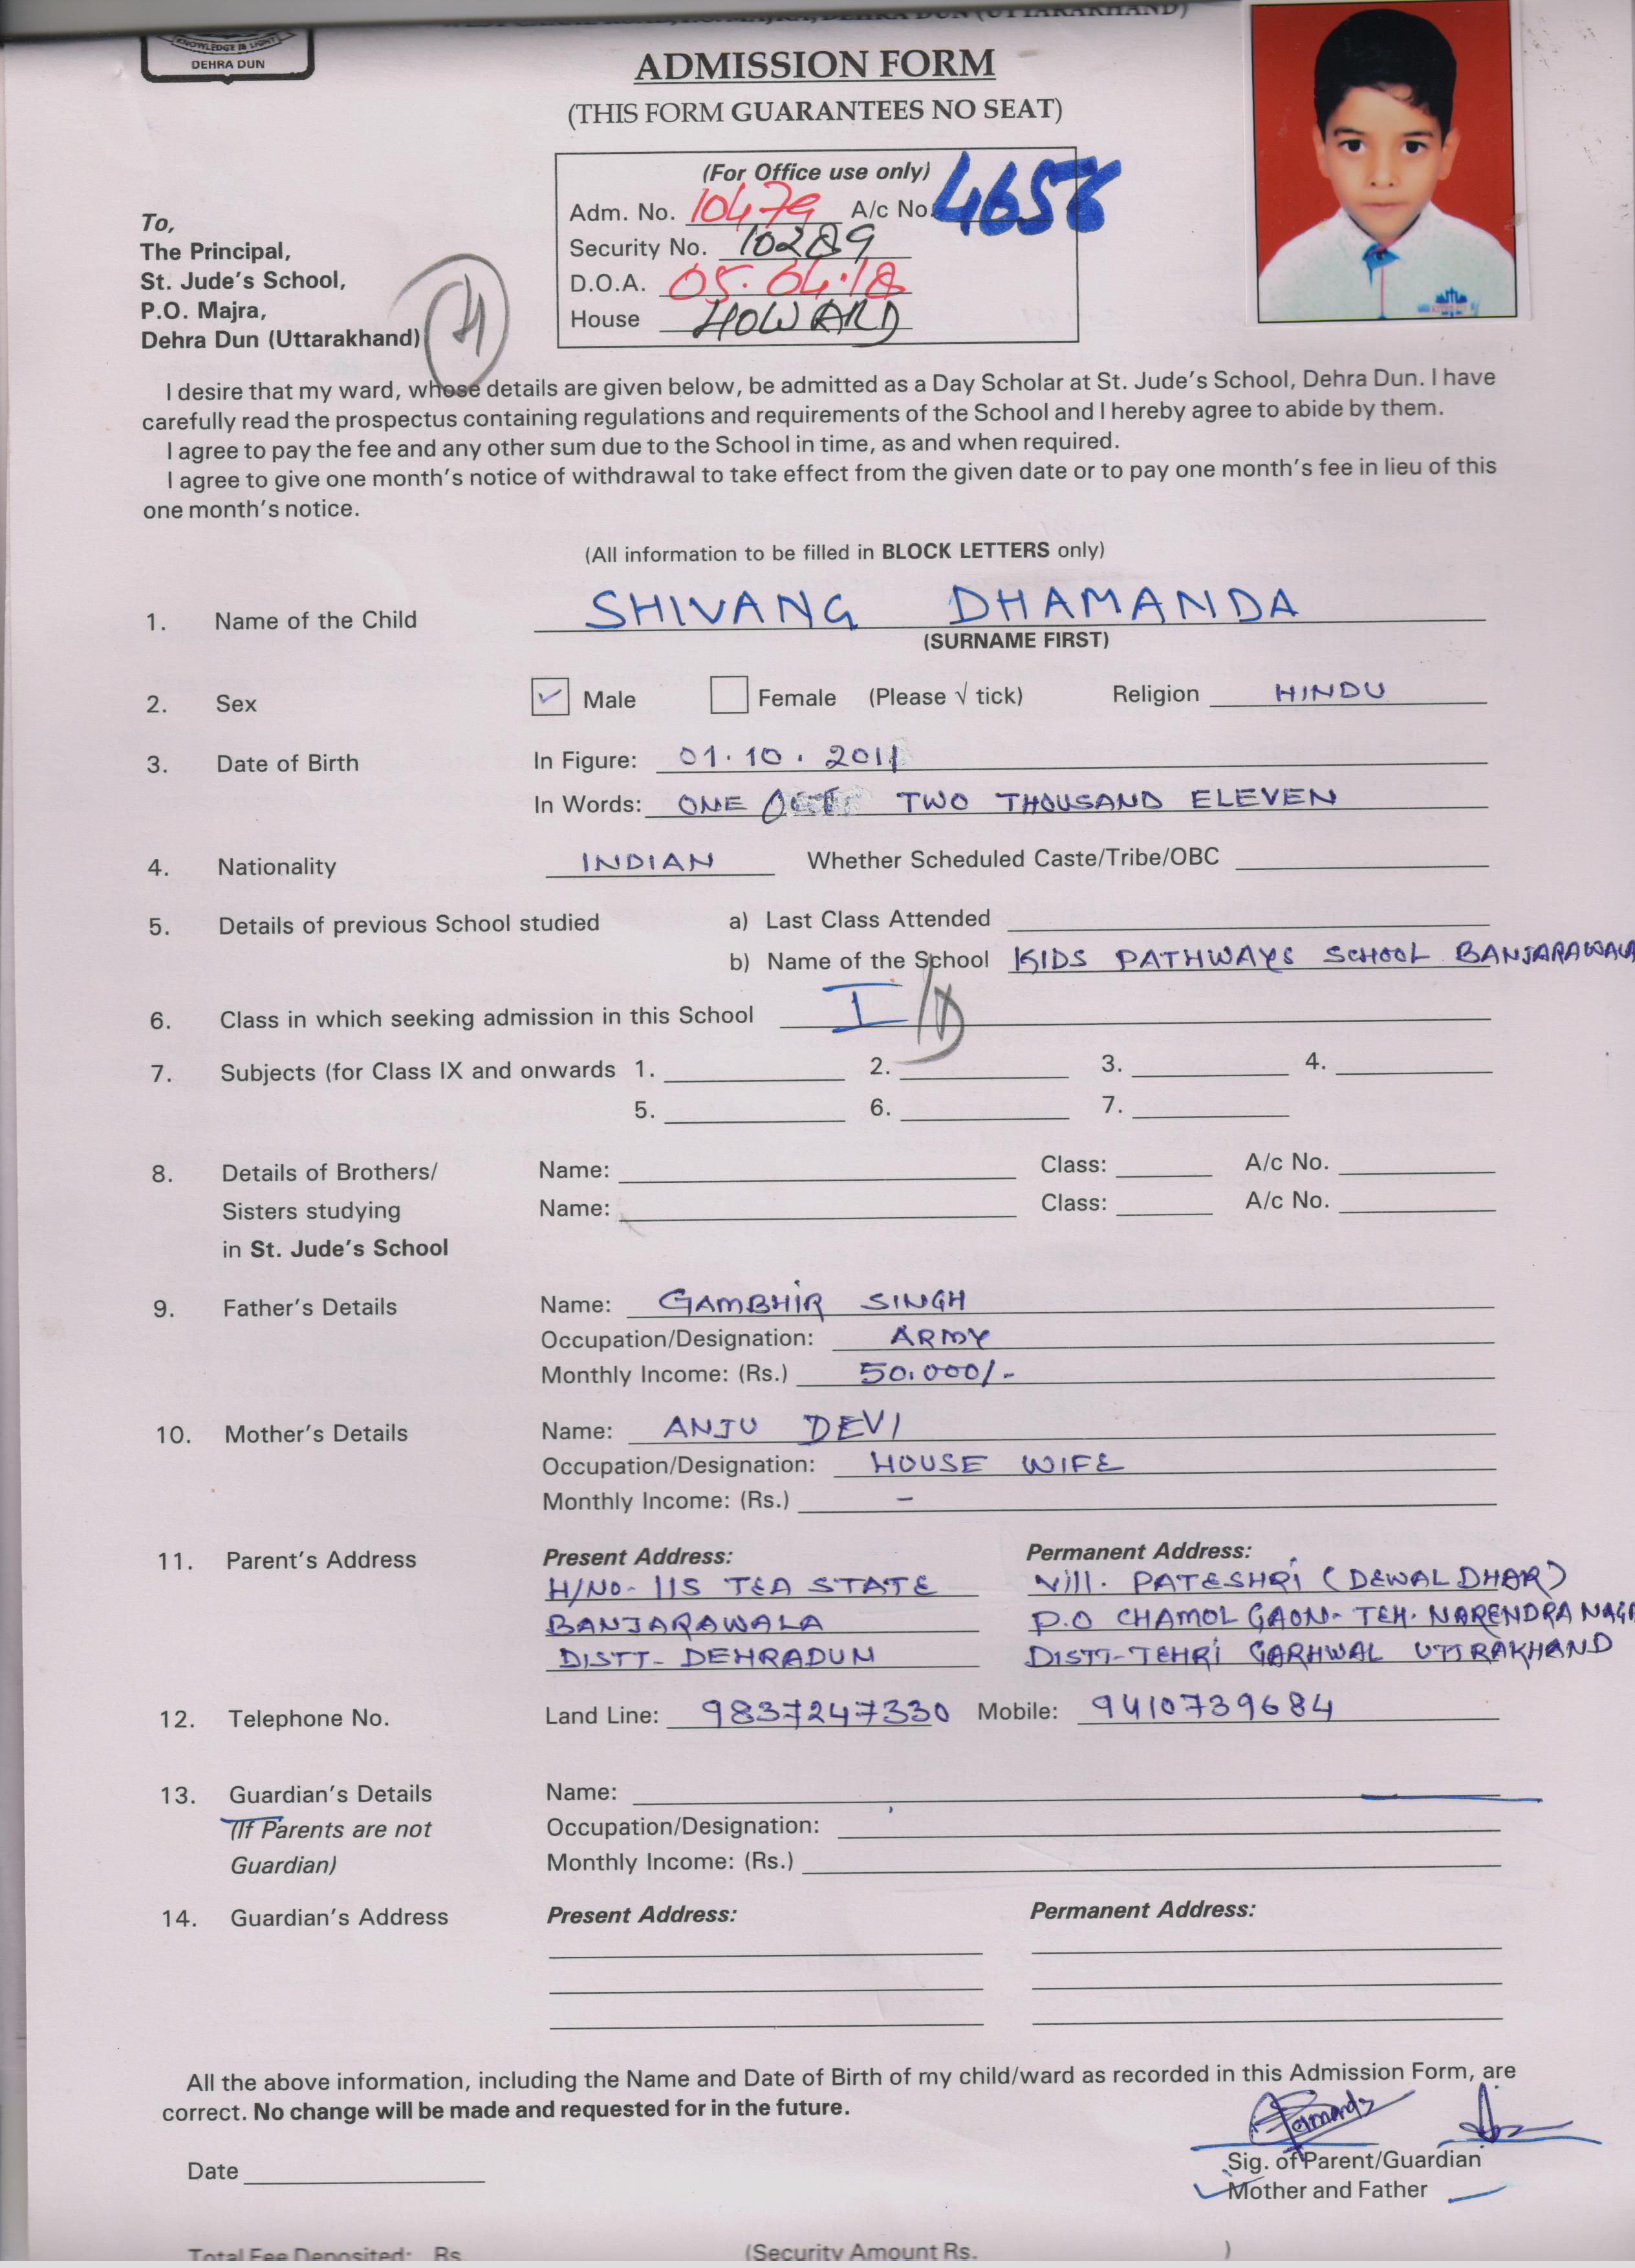 KNOWLEDGE IS LIGHT
DEHRA DUN
ADMISSION FORM
(THIS FORM GUARANTEES NO SEAT)
(For Office use only)
Adm. No. 10479 A/c No. 4658
Security No. 10289
D.O.A. 05.04.18
House HOWARD
To,
The Principal,
St. Jude's School,
P.O. Majra,
Dehra Dun (Uttarakhand)
I desire that my ward, whose details are given below, be admitted as a Day Scholar at St. Jude's School, Dehra Dun. I have
carefully read the prospectus containing regulations and requirements of the School and I hereby agree to abide by them.
I agree to pay the fee and any other sum due to the School in time, as and when required.
I agree to give one month's notice of withdrawal to take effect from the given date or to pay one month's fee in lieu of this
one month's notice.
(All information to be filled in BLOCK LETTERS only)
1. Name of the Child SHIVANG DHAMANDA
(SURNAME FIRST)
2. Sex ✓ Male Female (Please √ tick) Religion HINDU
3. Date of Birth In Figure: 01.10.2011
In Words: ONE OCT TWO THOUSAND ELEVEN
4. Nationality INDIAN Whether Scheduled Caste/Tribe/OBC
5. Details of previous School studied a) Last Class Attended
b) Name of the School KIDS PATHWAYS SCHOOL BANJARAWALA
6. Class in which seeking admission in this School I/D
7. Subjects (for Class IX and onwards 1. 2. 3. 4.
5. 6. 7.
8. Details of Brothers/ Name: Class: A/c No.
Sisters studying Name: Class: A/c No.
in St. Jude's School
9. Father's Details Name: GAMBHIR SINGH
Occupation/Designation: ARMY
Monthly Income: (Rs.) 50.000/-
10. Mother's Details Name: ANJU DEVI
Occupation/Designation: HOUSE WIFE
Monthly Income: (Rs.) -
11. Parent's Address Present Address: Permanent Address:
H/NO- 115 TEA STATE Vill. PATESHRI (DEWAL DHAR)
BANJARAWALA P.O CHAMOL GAON- TEH. NARENDRA NAGR
DISTT- DEHRADUN DISTT-TEHRI GARHWAL UTTRAKHAND
12. Telephone No. Land Line: 9837247330 Mobile: 9410739684
13. Guardian's Details Name:
(If Parents are not Occupation/Designation:
Guardian) Monthly Income: (Rs.)
14. Guardian's Address Present Address: Permanent Address:
All the above information, including the Name and Date of Birth of my child/ward as recorded in this Admission Form, are
correct. No change will be made and requested for in the future.
Sig. of Parent/Guardian
Date
Mother and Father
Total Fee Deposited: Rs (Security Amount Rs. )